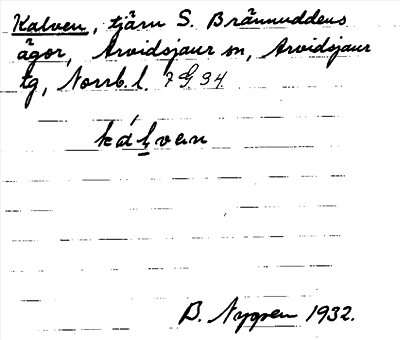 Kalven, tjärn S. Brännuddens
ägor, Arvidsjaur sn, Arvidsjaur
tg, Norrb. l. 7 G 94
kálvan
B. Nygren 1932.